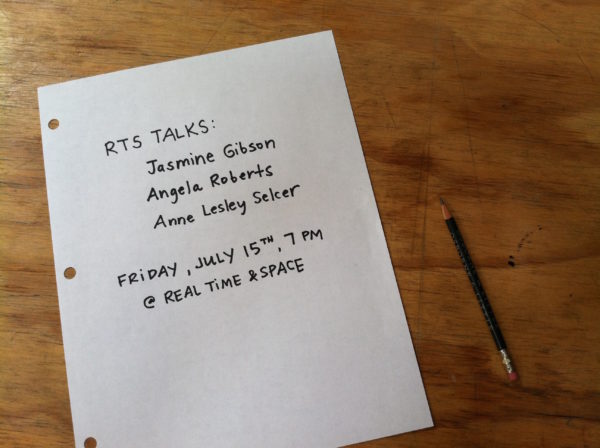 RTS TALKS:
Jasmine Gibson
Angela Roberts
Anne Lesley Selcer
FRIDAY, JULY 15TH, 7 PM
@ REAL TIME & SPACE